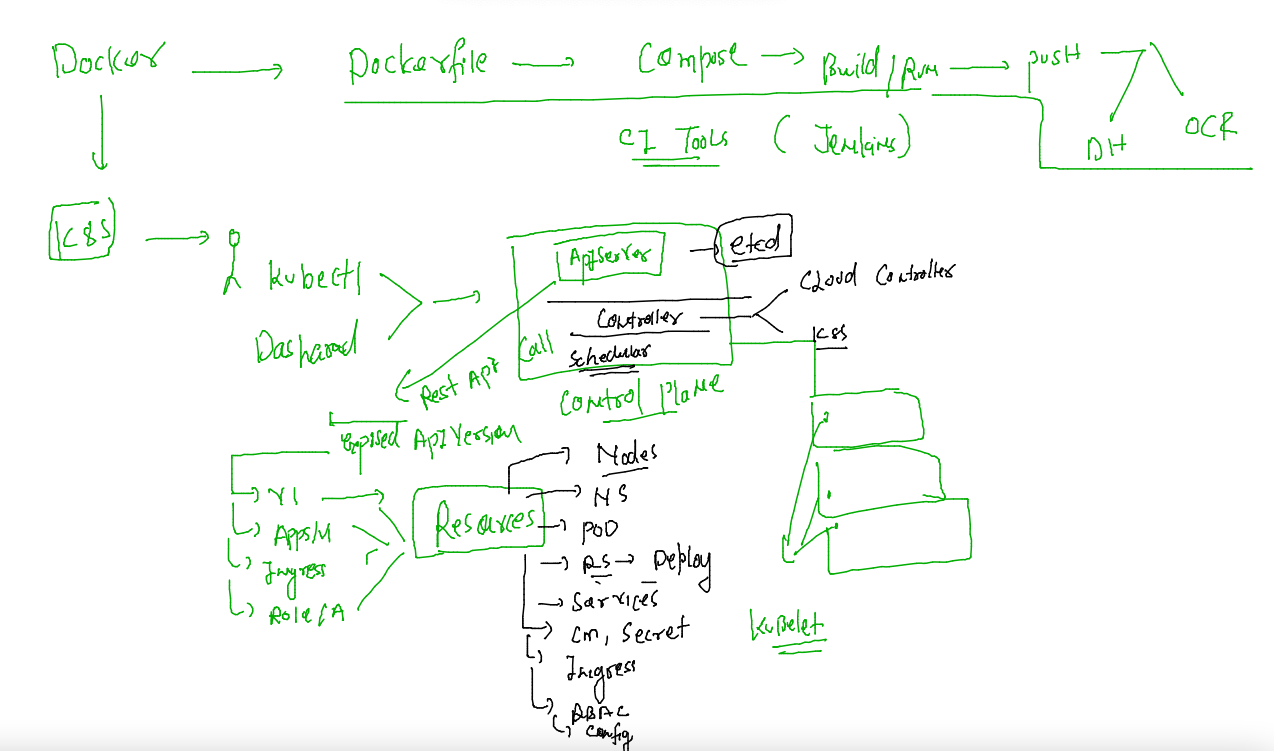 Docker → Dockerfile → Compose → Build/Run → push
DH OCR
CI Tools (Jenkins)
K8S →
Kubectl
Dashboard
ApiServer → etcd
Controller
Cloud Controller
K8S
Call Schedular
Control Plane
Rest Api
Exposed Api Version
V1
Apps/V1
Ingress
Role/A
Resources
Nodes
NS
POD
RS → Deploy
Services
Cm, Secret
Ingress
RBAC
Config
Kubelet